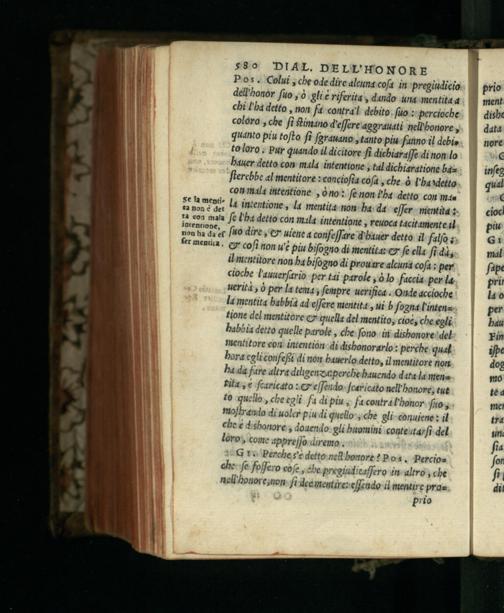 580 DIAL. DELL'HONORE
POS. Colui, che ode dire alcuna cosa in pregiudicio
dell'honor suo, ò gli è riferita, dando una mentita a
chi l'ha detto, non fa contra'l debito suo: percioche
coloro, che si stimano d'essere aggrauati nell'honore,
quanto piu tosto si sgrauano, tanto piu fanno il debi-
to loro. Pur quando il dicitore si dichiarasse di non lo
hauer detto con mala intentione, tal dichiaratione ba-
sterebbe al mentitore: conciosia cosa, che ò l'ha detto
con mala intentione, ò no: se non l'ha detto con ma-
la intentione, la mentita non ha da esser mentita:
se l'ha detto con mala intentione, reuoca tacitamente il
suo dire, & uiene a confessare d'hauer detto il falso:
& così non u'è piu bisogno di mentita: & se ella si dà,
il mentitore non ha bisogno di prouare alcuna cosa: per
cioche l'auuersario per tai parole, ò lo faccia per la
uerità, ò per la tema, sempre uerifica. Onde accioche
la mentita habbia ad essere mentita, ui bisogna l'inten-
tione del mentitore & quella del mentito, cioè, che egli
habbia detto quelle parole, che sono in dishonore del
mentitore con intention di dishonorarlo: perche qual
hora egli confessi di non hauerlo detto, il mentitore non
ha da fare altra diligenza: perche hauendo data la men-
tita, è scaricato: & essendo scaricato nell'honore, tut
to quello, che egli fa di piu, fa contra l'honor suo,
mostrando di uoler piu di quello, che gli conuiene: il
che è dishonore, douendo gli huomini contentarsi del
loro, come appresso diremo.
GI. Perche s'è detto nell'honore? POS. Percio-
che se fossero cose, che pregiudicassero in altro, che
nell'honore, non si dee mentire: essendo il mentire pro-
prio
Se la menti-
ta non è det
ta con mala
intentione,
non ha da es
ser mentita.